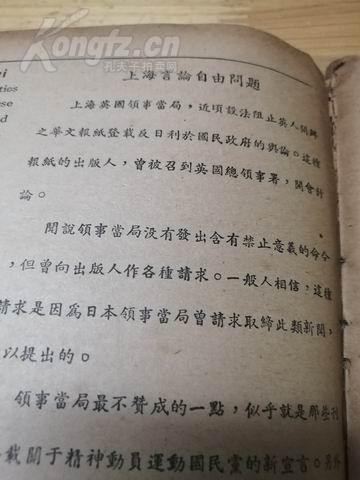 Kongfz.com
孔夫子拍卖网
上海言論自由問題
上海英國領事當局，近頃設法阻止英人開辦
之華文報紙登載反日利於國民政府的輿論。這種
報紙的出版人，曾被召到英國總領事署，開會討
論。
聞說領事當局没有發出含有禁止意義的命令
，但曾向出版人作各種請求。一般人相信，這種
請求是因爲日本領事當局曾請求取締此類新聞，
以提出的。
領事當局最不贊成的一點，似乎就是那些刊
載關于精神動員運動國民黨的新宣言。另外